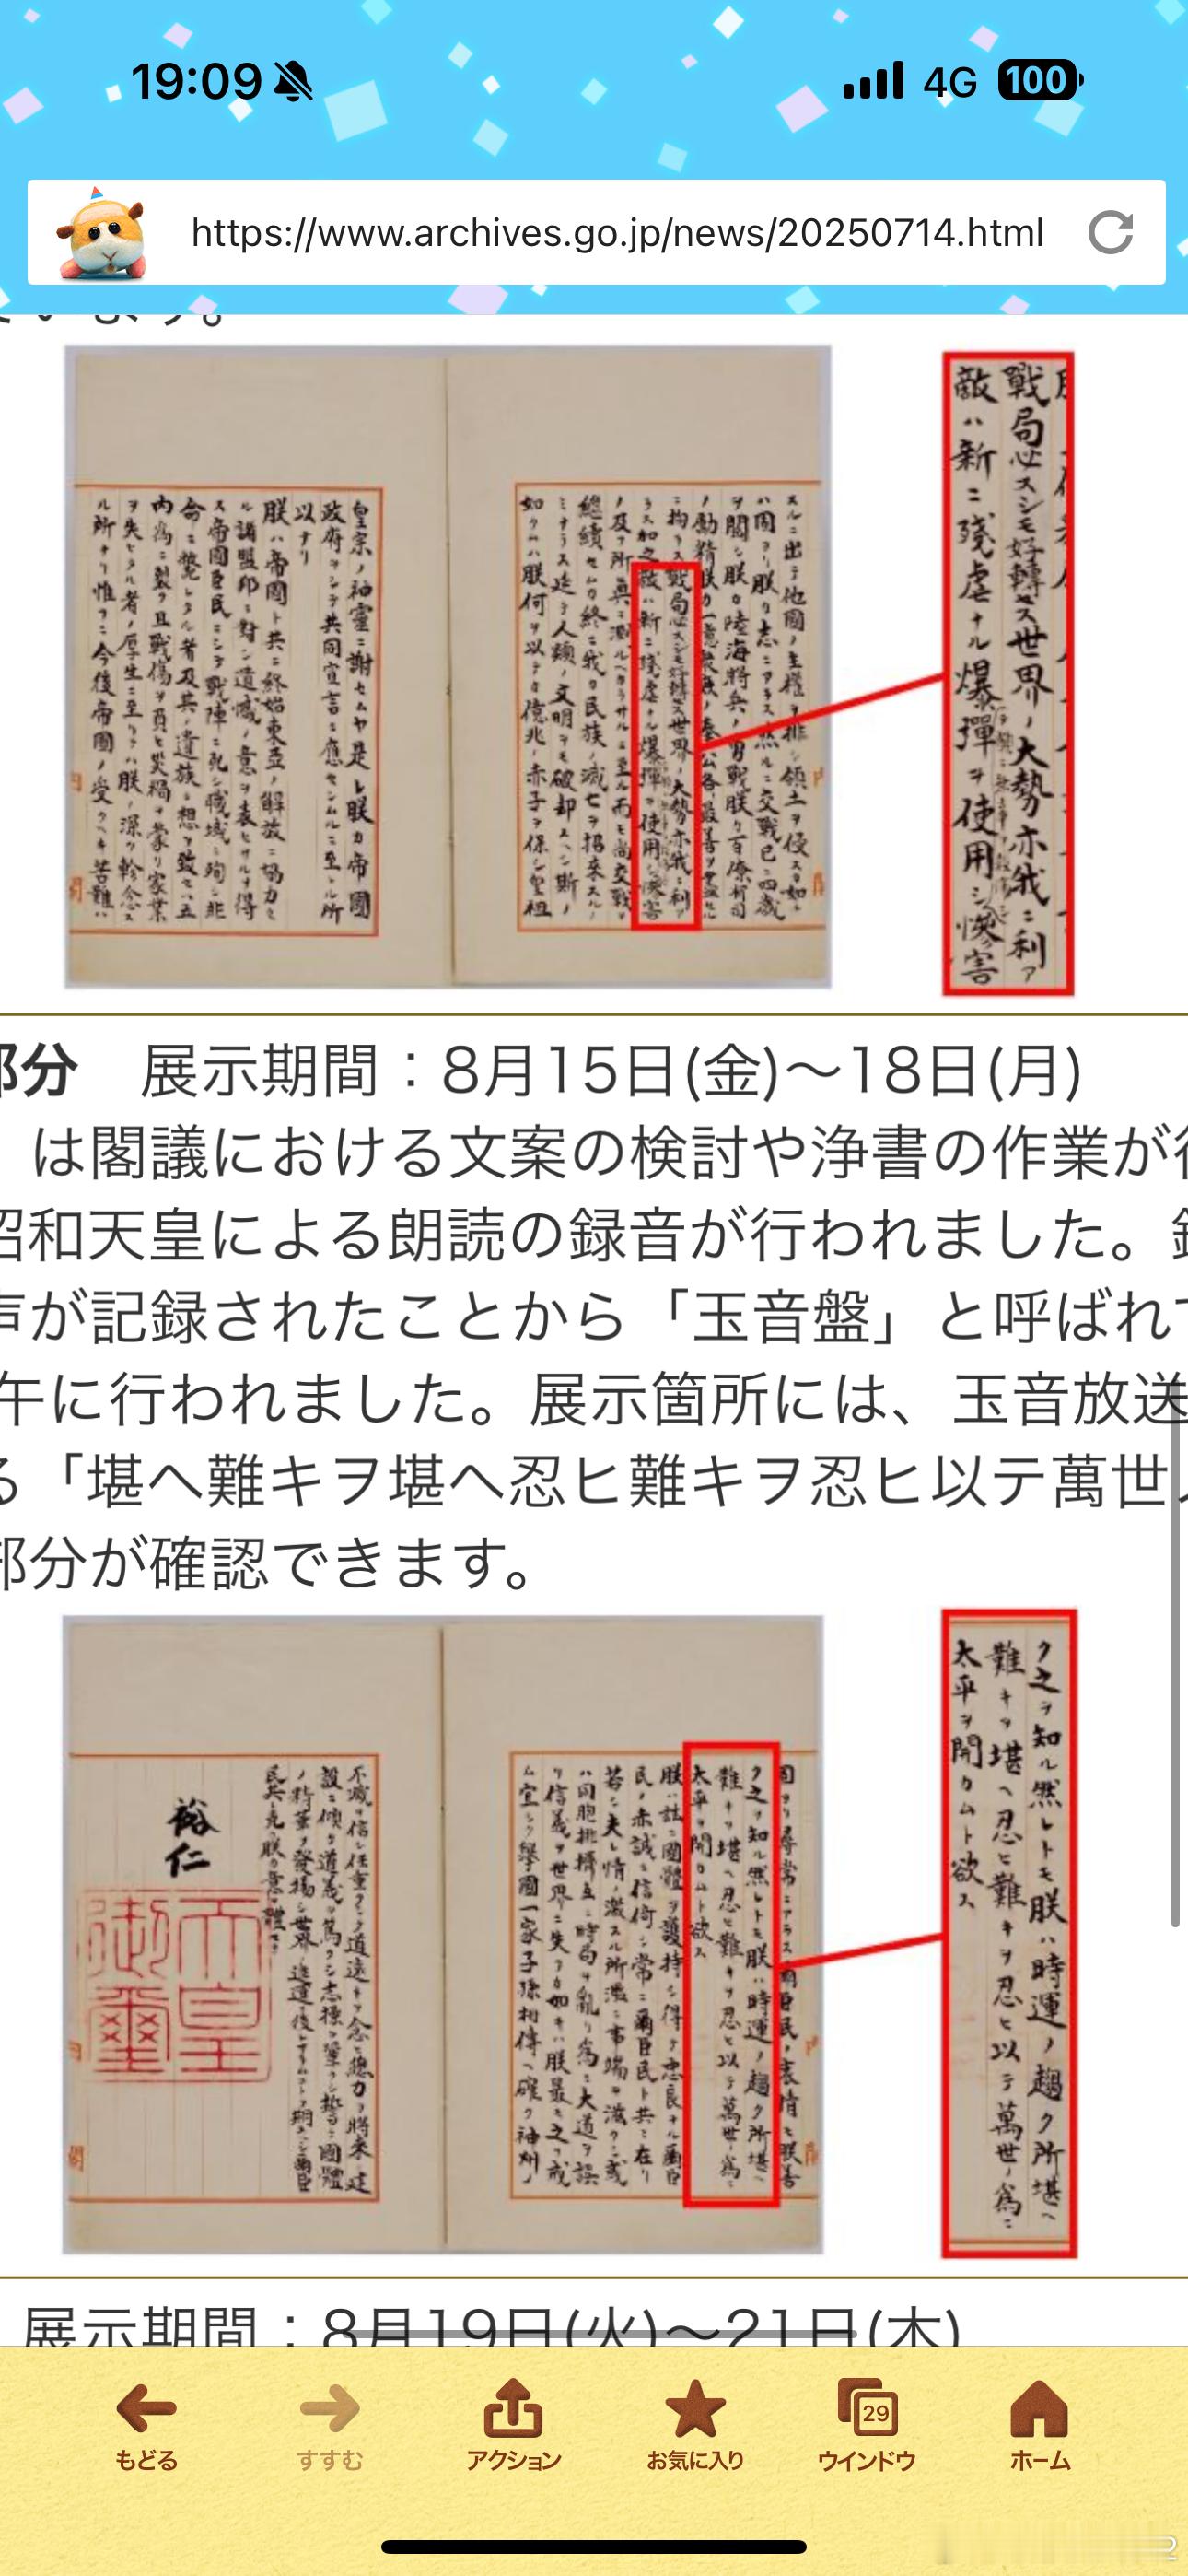 19:09
4G
100
https://www.archives.go.jp/news/20250714.html
スルニ出テ他國ノ主權ヲ排シ領土ヲ侵スカ如キ
ハ固ヨリ朕カ志ニアラス然ルニ交戰已ニ四歳
ヲ閲シ朕カ陸海將兵ノ勇戰朕カ百僚有司
ノ勵精朕カ一億衆庶ノ奉公各最善ヲ盡セル
ニ拘ラス戰局必スシモ好轉セス世界ノ大勢亦我ニ利ア
ラス加之敵ハ新ニ殘虐ナル爆彈ヲ使用シ惨害
ノ及フ所眞ニ測ルヘカラサルニ至ル而モ尚交戰ヲ
繼續セムカ終ニ我カ民族ノ滅亡ヲ招來スルノ
ミナラス延テ人類ノ文明ヲモ破却スヘシ斯ノ
如クムハ朕何ヲ以テカ億兆ノ赤子ヲ保シ皇祖
皇宗ノ神靈ニ謝セムヤ是レ朕カ帝國
政府ヲシテ共同宣言ニ應セシムルニ至レル所
以ナリ
朕ハ帝國ト共ニ終始東亞ノ解放ニ協力セ
ル諸盟邦ニ對シ遺憾ノ意ヲ表セサルヲ得
ス帝國臣民ニシテ戰陣ニ死シ職域ニ殉シ非
命ニ斃レタル者及其ノ遺族ニ想ヲ致セハ五
内爲ニ裂ク且戰傷ヲ負ヒ災禍ヲ蒙リ家業
ヲ失ヒタル者ノ厚生ニ至リテハ朕ノ深ク軫念ス
ル所ナリ惟フニ今後帝國ノ受クヘキ苦難ハ
戰局必スシモ好轉セス世界ノ大勢亦我ニ利ア
敵ハ新ニ殘虐ナル爆彈ヲ使用シ惨害
部分　展示期間：8月15日(金)～18日(月)
は閣議における文案の検討や浄書の作業が行
昭和天皇による朗読の録音が行われました。録
声が記録されたことから「玉音盤」と呼ばれて
午に行われました。展示箇所には、玉音放送
る「堪ヘ難キヲ堪ヘ忍ヒ難キヲ忍ヒ以テ萬世ノ
部分が確認できます。
固ヨリ尋常ニアラス爾臣民ノ衷情モ朕善
ク之ヲ知ル然レトモ朕ハ時運ノ趨ク所堪ヘ
難キヲ堪ヘ忍ヒ難キヲ忍ヒ以テ萬世ノ爲ニ
太平ヲ開カムト欲ス
朕ハ茲ニ國體ヲ護持シ得テ忠良ナル爾臣
民ノ赤誠ニ信倚シ常ニ爾臣民ト共ニ在リ
若シ夫レ情ノ激スル所濫ニ事端ヲ滋クシ或
ハ同胞排擠互ニ時局ヲ亂リ爲ニ大道ヲ誤
リ信義ヲ世界ニ失フカ如キハ朕最モ之ヲ戒
ム宜シク擧國一家子孫相傳ヘ確ク神州ノ
不滅ヲ信シ任重クシテ道遠キヲ念ヒ總力ヲ將來ノ建
設ニ傾ケ道義ヲ篤クシ志操ヲ鞏クシ誓テ國體
ノ精華ヲ發揚シ世界ノ進運ニ後レサラムコトヲ期スヘシ爾臣
民其レ克ク朕カ意ヲ體セヨ
裕仁
天皇
御璽
ク之ヲ知ル然レトモ朕ハ時運ノ趨ク所堪ヘ
難キヲ堪ヘ忍ヒ難キヲ忍ヒ以テ萬世ノ爲ニ
太平ヲ開カムト欲ス
展示期間：8月19日(火)～21日(木)
もどる
すすむ
アクション
お気に入り
29
ウインドウ
ホーム